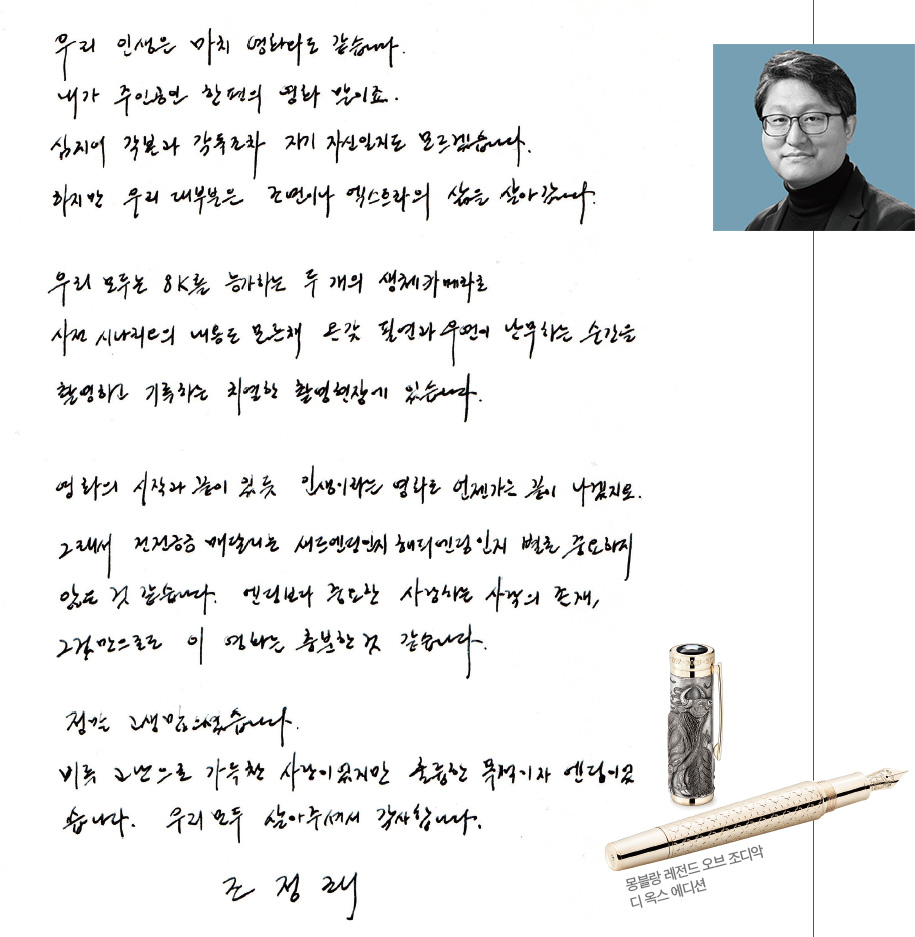 우리 인생은 마치 영화와도 같습니다.
내가 주인공인 한 편의 영화 말이죠.
심지어 각본과 감독조차 자기 자신일지도 모르겠습니다.
하지만 우리 대부분은 조연이나 엑스트라의 삶을 살아갑니다.
우리 모두는 8K를 능가하는 두 개의 생체카메라로
사전 시나리오의 내용도 모른채 온갖 필연과 우연이 난무하는 순간을
촬영하고 기록하는 치열한 촬영현장에 있습니다.
영화의 시작과 끝이 있듯 인생이라는 영화도 언젠가는 끝이 나겠지요.
그래서 전전긍긍 매달리는 새드엔딩인지 해피엔딩인지 별로 중요하지
않은 것 같습니다. 엔딩보다 중요한 사랑하는 사람의 존재,
그것만으로도 이 영화는 충분한 것 같습니다.
정말 고생많으셨습니다.
비록 고난으로 가득찬 사랑이었지만 훌륭한 목적이자 엔딩이었
습니다. 우리 모두 살아주셔서 감사합니다.
조 정 래
몽블랑 레전드 오브 조디악
디 옥스 에디션